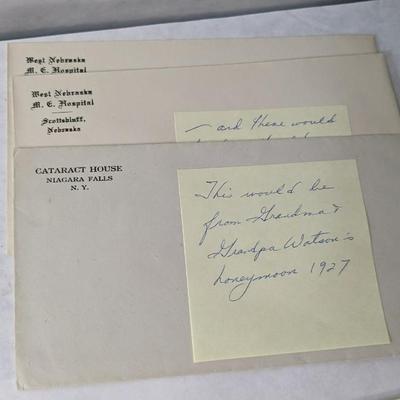 West Nebraska
M. E. Hospital
West Nebraska
M. E. Hospital
Scottsbluff,
Nebraska
— and these would
CATARACT HOUSE
NIAGARA FALLS
N. Y.
This would be
from Grandma &
Grandpa Watson's
honeymoon 1927